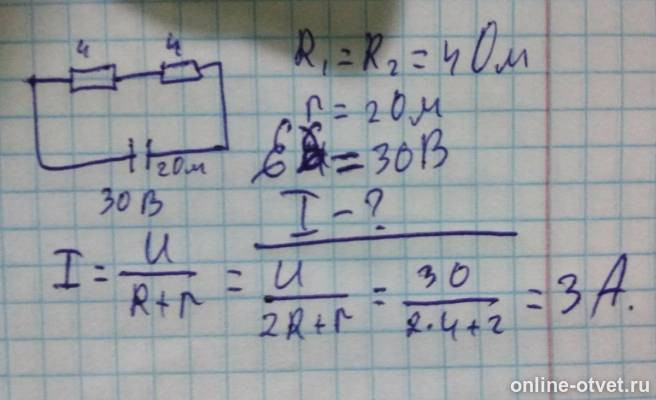 4 4
2Ом
30 В
R₁ = R₂ = 4 Ом
r = 2 Ом
ℰ = 30 В
I - ?
I = U/(R+r) = U/(2R+r) = 30/(2·4+2) = 3 А.
online-otvet.ru